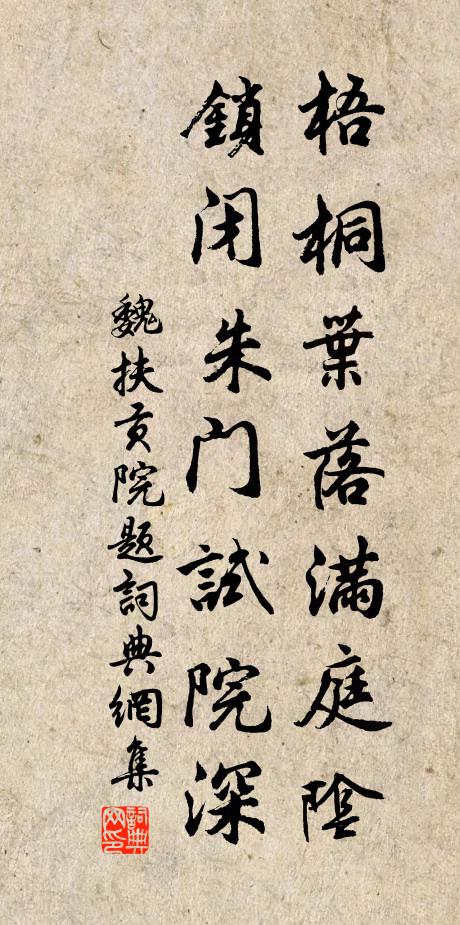 梧桐葉落滿庭陰
鎖閉朱門試院深
魏扶貢院題詞典網集
詞典網印